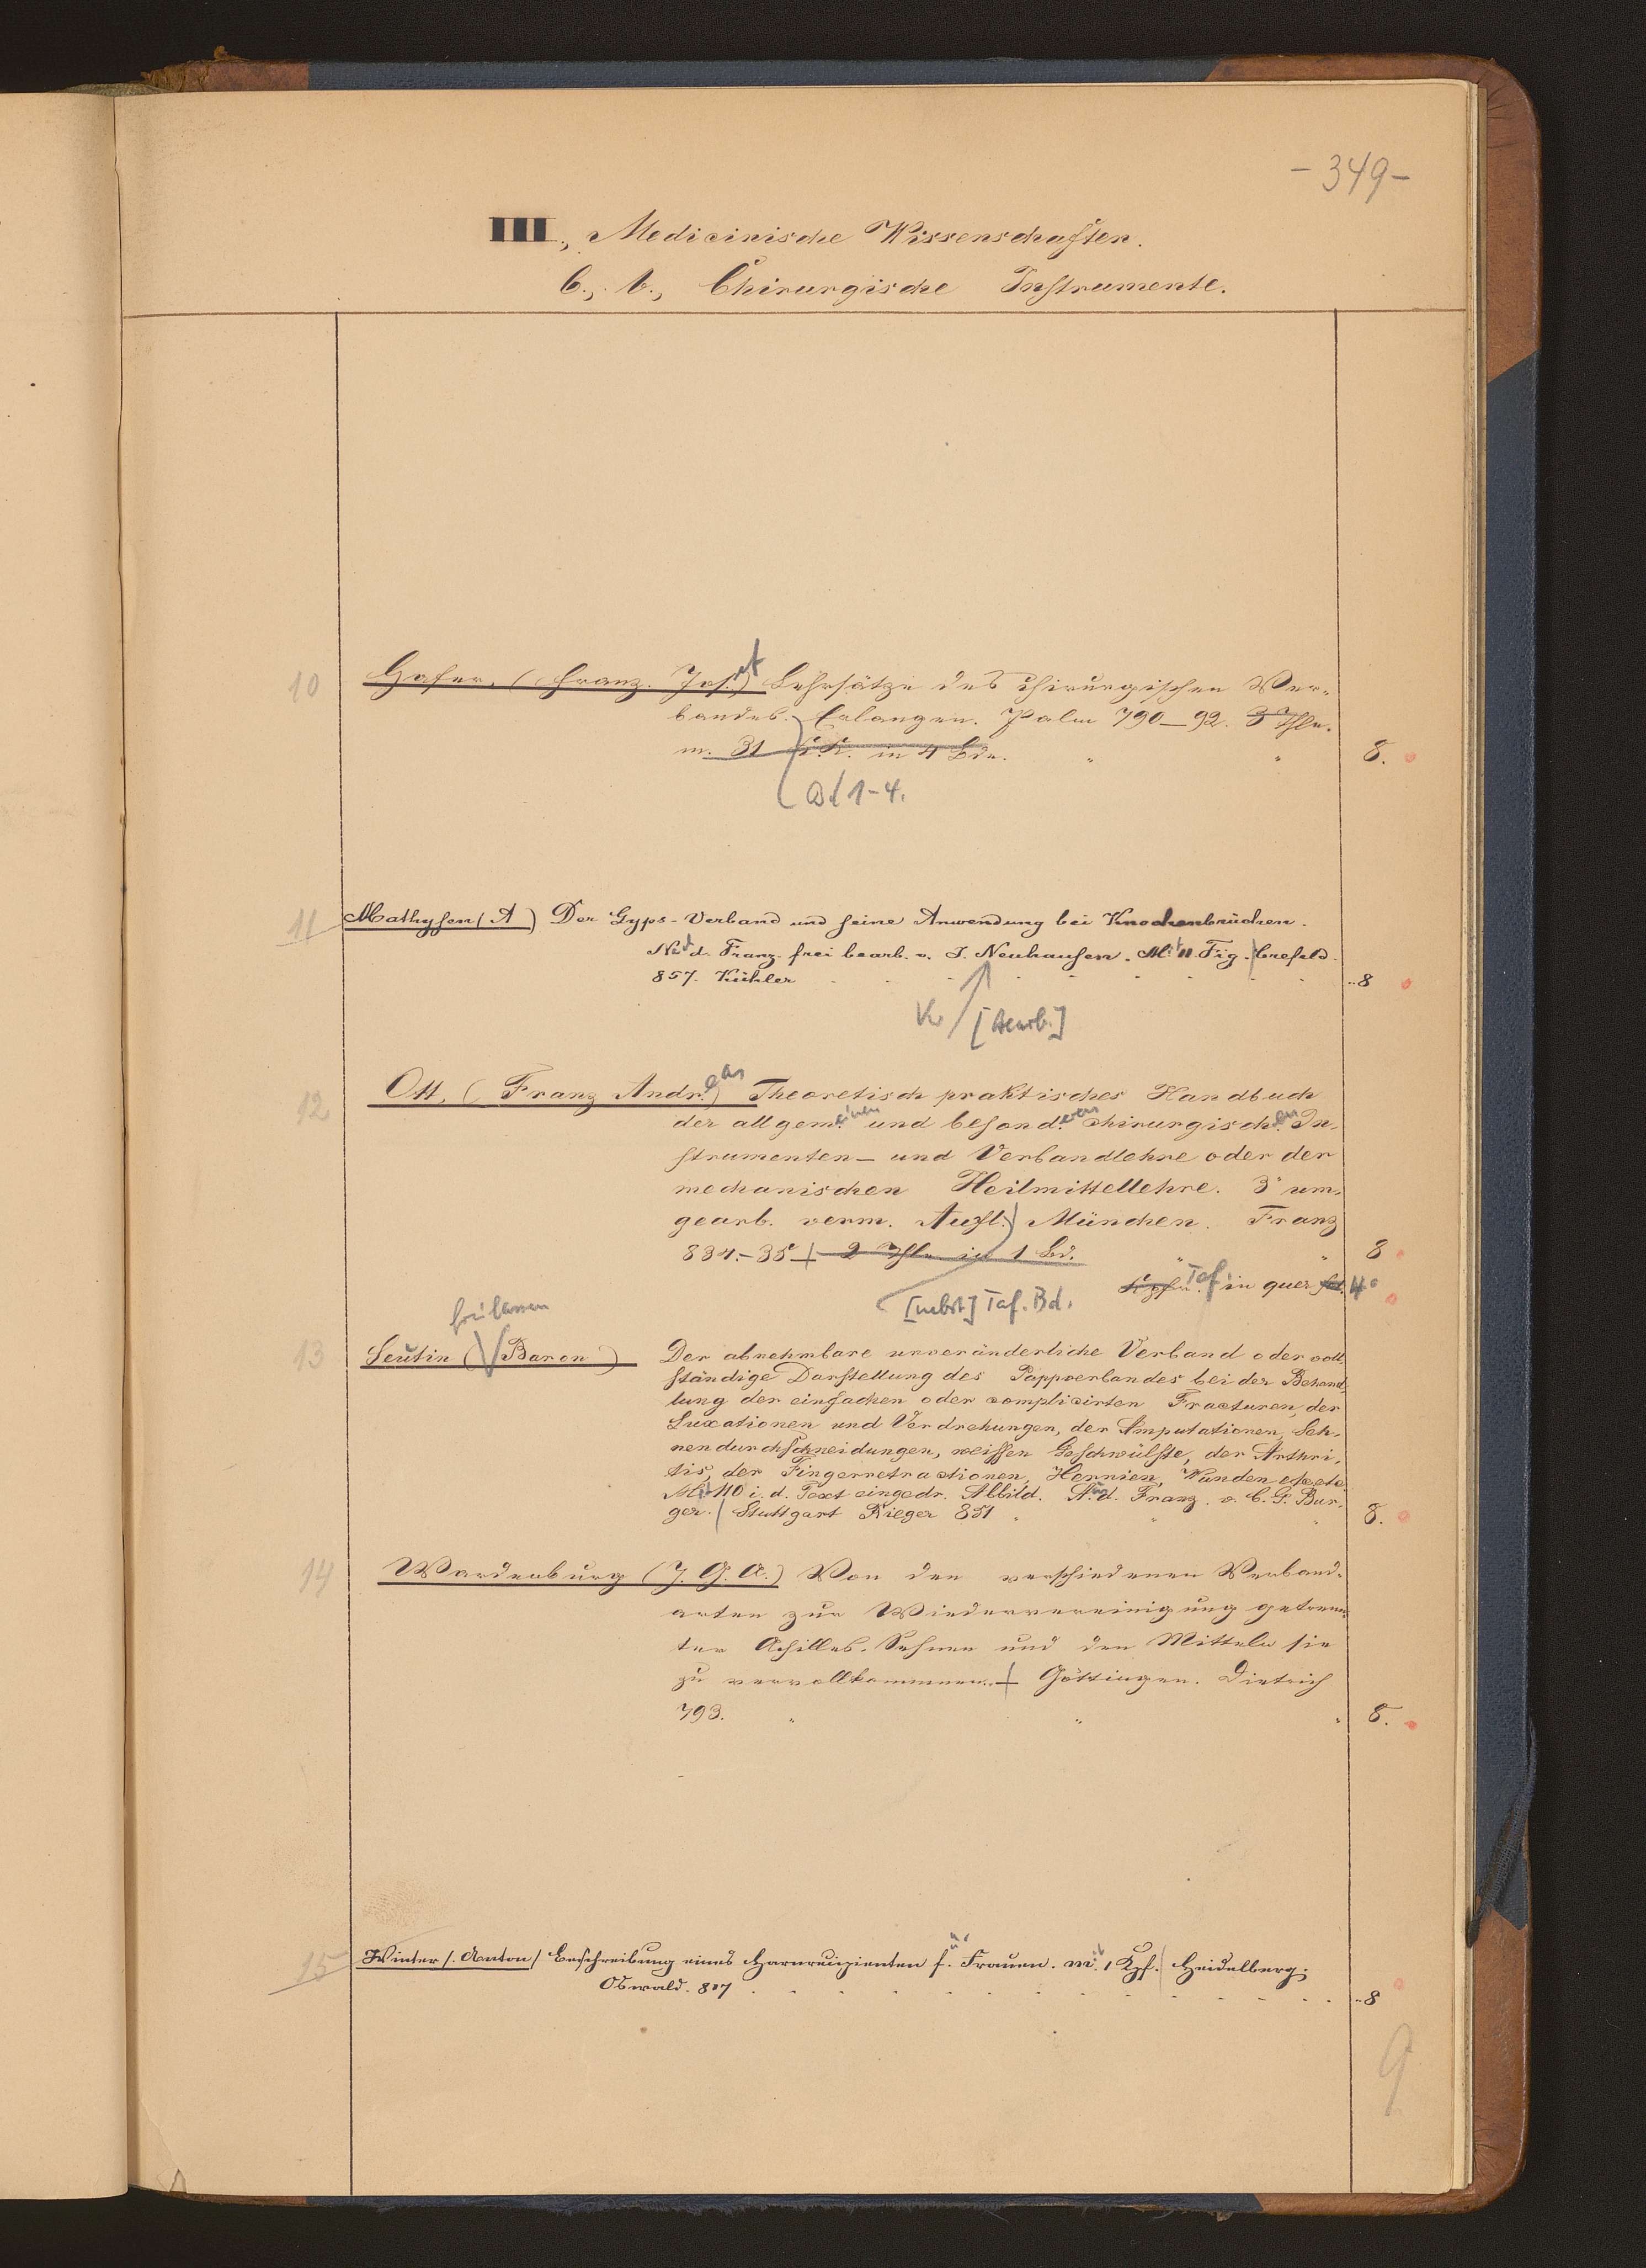 - 349 -
III., Medicinische Wissenschaften.
C., b., Chirurgische Instrumente.
10 Hofer, (Franz. Jos.ef) Lehrsätze des chirurgischen Ver-
bandes. Erlangen. Palm 790_92. 3 Thle.
m. 31 K.K. in 4 Bde. " " 8.
Bd 1-4.
11 Mathysen (A) Der Gyps-Verband und seine Anwendung bei Knochenbrüchen.
N. d. Franz. frei bearb. v. J. Neuhausen. Mit 11 Fig. Crefeld.
857. Kühler .. 8
[Bearb.]
12 Ott, (Franz Andr.eas) Theoretisch praktisches Handbuch
der allgem.einen und besond.eren chirurgisch.en In-
strumenten- und Verbandlehre oder der
mechanischen Heilmittellehre. 3e um-
gearb. verm. Aufl. München. Franz
834.-35 2 Thle in 1 Bd. " " 8
Kpfr. Taf. in quer fol. 4°
[nebst] Taf. Bd.
13 Seutin (Baron) Der abnehmbare unveränderliche Verband oder voll-
ständige Darstellung des Pappverbandes bei der Behand-
lung der einfachen oder complicirten Fracturen, der
Luxationen und Verdrehungen, der Amputationen, Seh-
nendurchschneidungen, weissen Geschwülste, der Arthri-
tis, der Fingerretractionen, Hernien, Wunden etcetc.
Mit 110 i. d. Text eingedr. Abbild. N. d. Franz. v. C. G. Bur-
ger. Stuttgart Rieger 851 " " " 8.
14 Wardenburg (J. G. A.) Von den verschiedenen Verband-
arten zur Wiedervereinigung getrenn-
ter Achilles-Sehnen und den Mitteln sie
zu vervollkommnen. Göttingen. Dietrich
793. " " " 8.
15 Winter (Anton) Beschreibung eines Harnrecipienten f. Frauen. mit 1 Kpf. Heidelberg.
Oswald. 807 .. 8
9